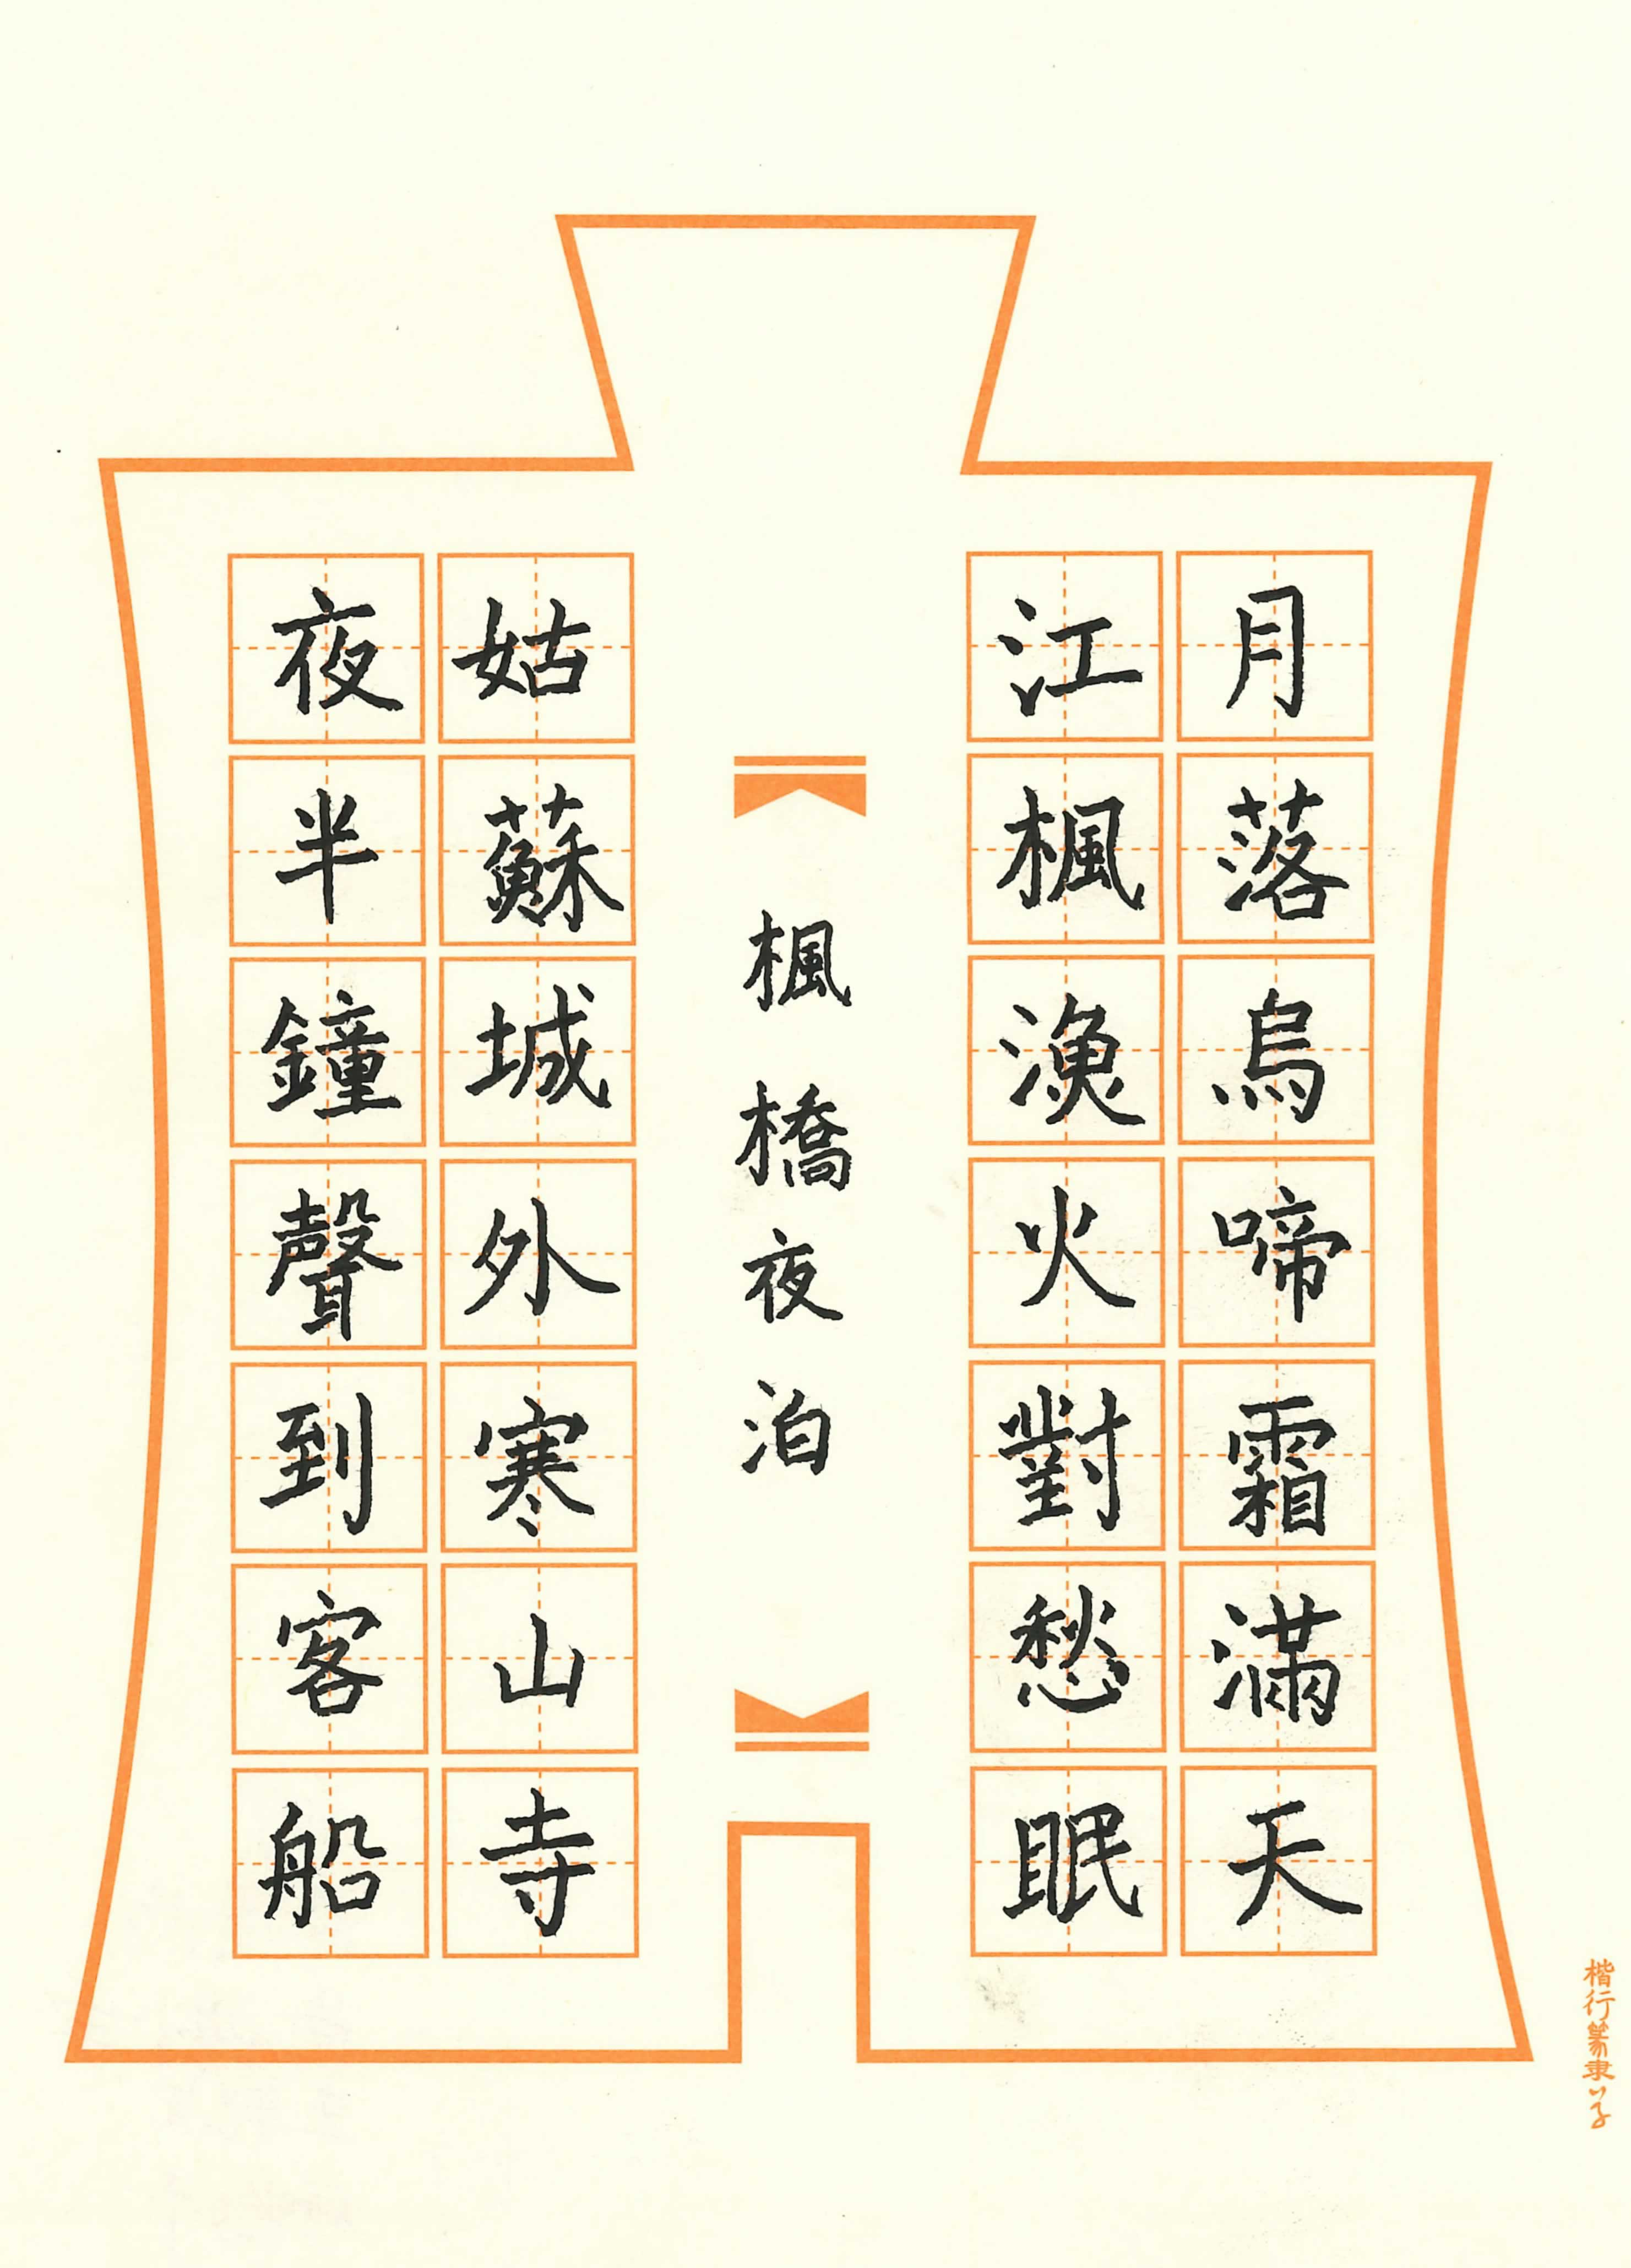 月落烏啼霜滿天
江楓漁火對愁眠
楓橋夜泊
姑蘇城外寒山寺
夜半鐘聲到客船
楷行篆隶草